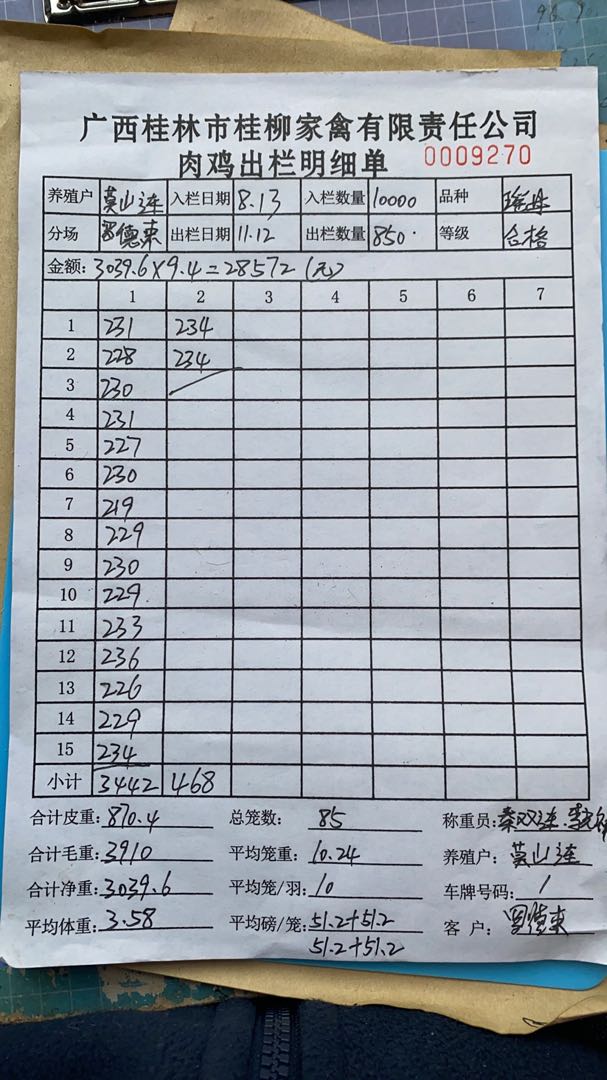 广西桂林市桂柳家禽有限责任公司
肉鸡出栏明细单 0009270
养殖户 莫山连 入栏日期 8.13 入栏数量 10000 品种
分场 罗德来 出栏日期 11.12 出栏数量 850 等级 合格
金额: 3039.6×9.4=28572(元)
1 2 3 4 5 6 7
1 231 234
2 228 234
3 230
4 231
5 227
6 230
7 219
8 229
9 230
10 229
11 233
12 236
13 226
14 229
15 234
小计 3442 468
合计皮重: 870.4 总笼数: 85 称重员: 秦双连
合计毛重: 3910 平均笼重: 10.24 养殖户: 莫山连
合计净重: 3039.6 平均笼/羽: 10 车牌号码: 1
平均体重: 3.58 平均磅/笼: 51.2+51.2 客户: 罗德来
51.2+51.2